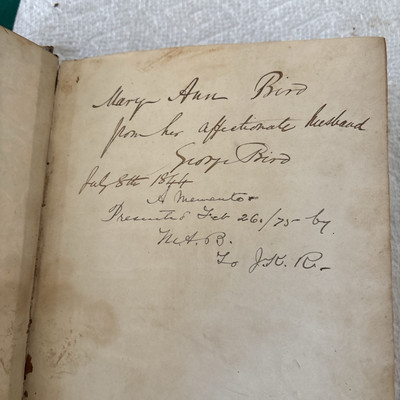 Mary Ann Bird
from her affectionate husband
George Bird
July 8th 1844
A Memento
Presented Feb 26./75 by
M.A.B.
To J.K. R.